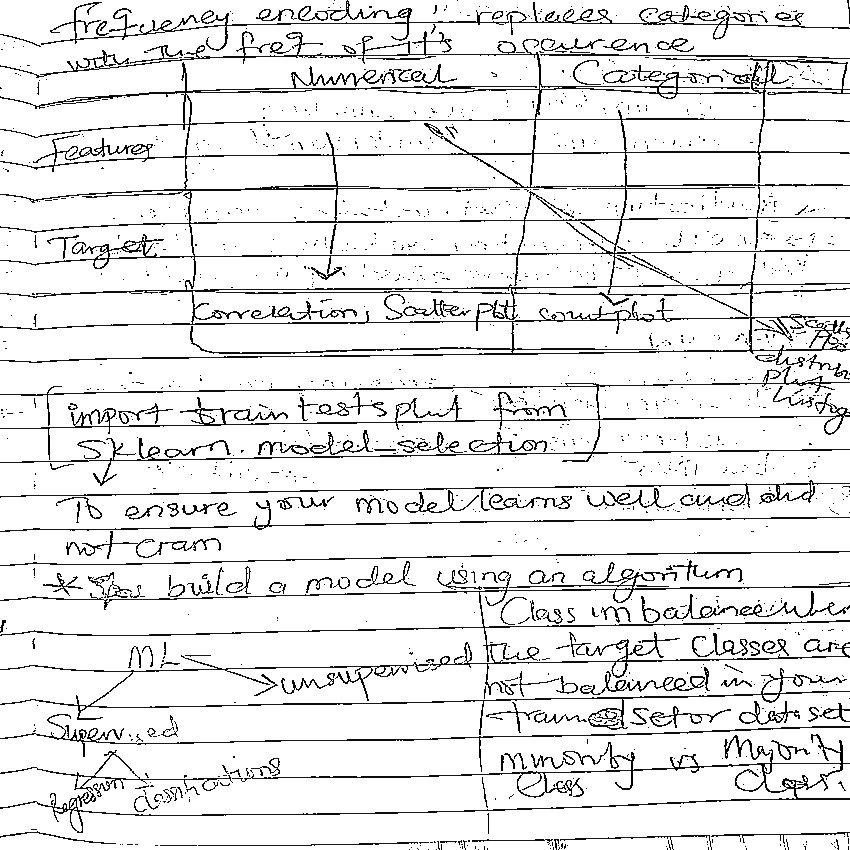 frequency encoding; replaces categories
with the freq of it's occurence
Numerical Categorical
Features
Target
Correlation, Scatterplot countplot
distrib
plot
histog
import train test split from
Sklearn. model_selection
To ensure your model learns well and did
not cram
* You build a model using an algorithm
ML
unsupervised
Supervised
Regression classifications
Class imbalance when
the target Classes are
not balanced in your
train set or dataset
minority vs Majority
Class Class.